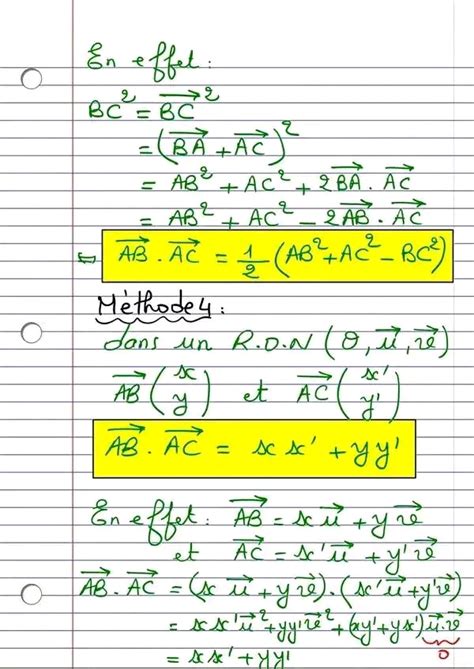 En effet :
BC² = \overrightarrow{BC}²
= (\overrightarrow{BA} + \overrightarrow{AC})²
= AB² + AC² + 2\overrightarrow{BA} . \overrightarrow{AC}
= AB² + AC² - 2\overrightarrow{AB} . \overrightarrow{AC}
\overrightarrow{AB} . \overrightarrow{AC} = \frac{1}{2} (AB² + AC² - BC²)
Méthode 4 :
dans un R.O.N (O, \vec{u}, \vec{v})
\overrightarrow{AB} \binom{x}{y} et \overrightarrow{AC} \binom{x'}{y'}
\overrightarrow{AB} . \overrightarrow{AC} = x x' + y y'
En effet : \overrightarrow{AB} = x \vec{u} + y \vec{v}
et \overrightarrow{AC} = x' \vec{u} + y' \vec{v}
\overrightarrow{AB} . \overrightarrow{AC} = (x \vec{u} + y \vec{v}) . (x' \vec{u} + y' \vec{v})
= x x' \vec{u}² + y y' \vec{v}² + (xy' + yx') \vec{u} . \vec{v}
0
= x x' + y y'